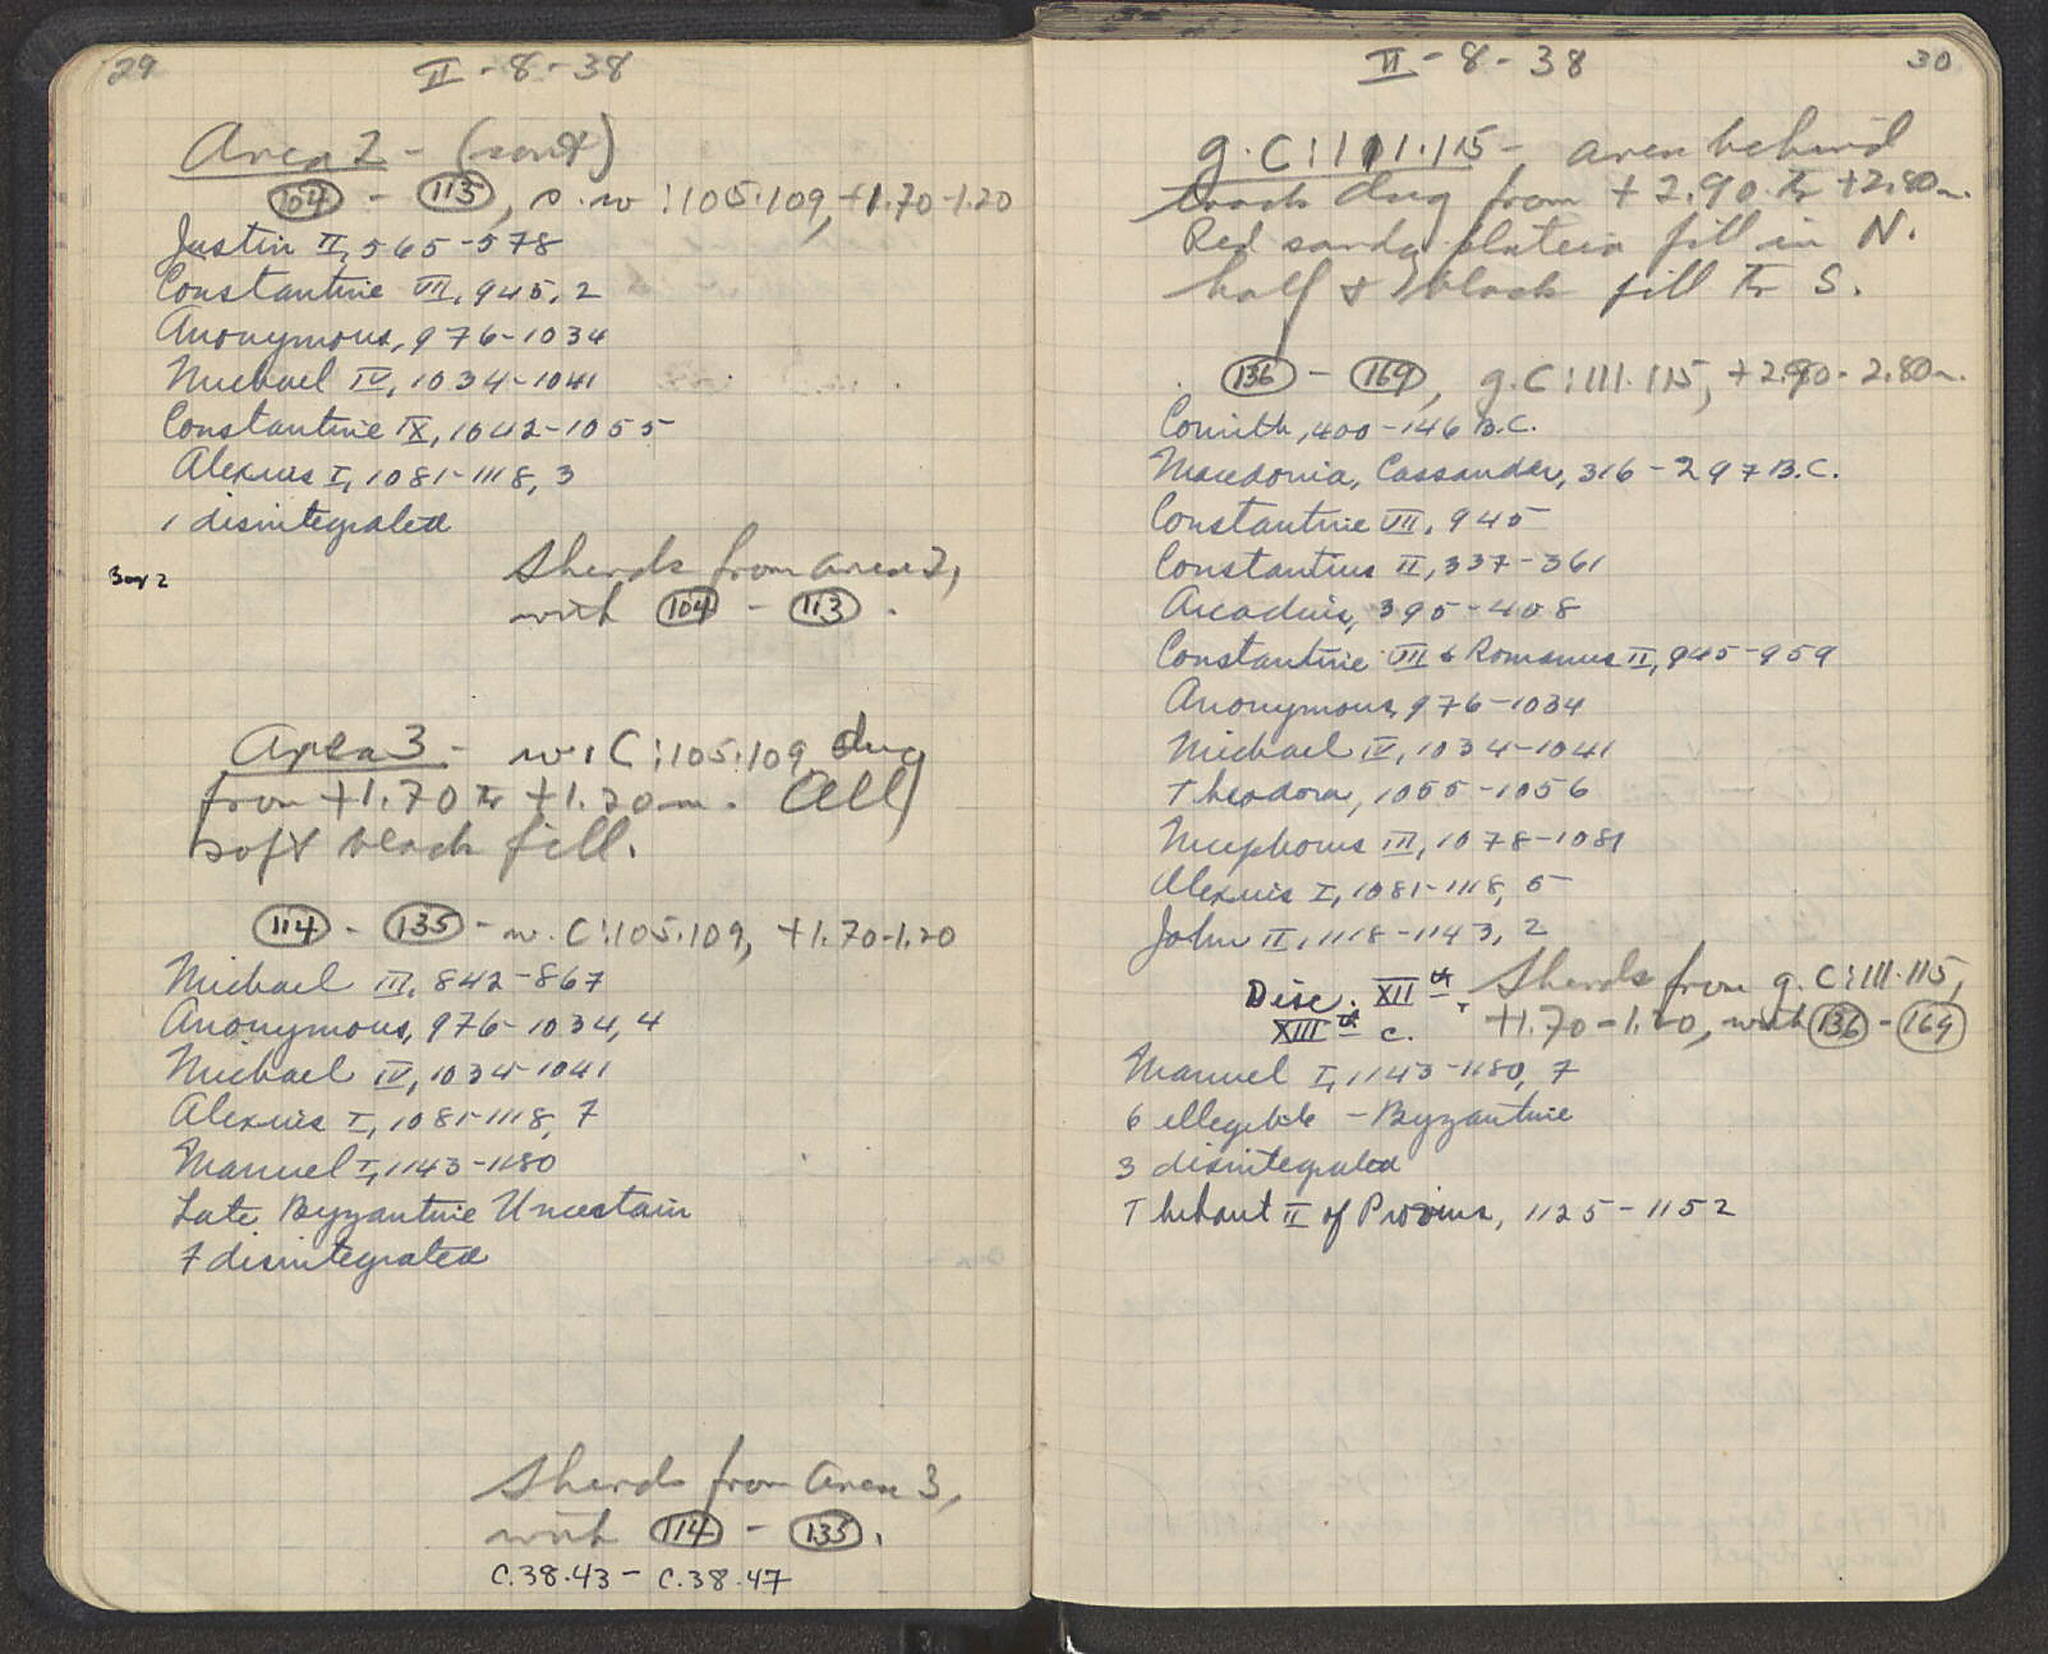 29
II-8-38
Area 2 - (cont)
104 - 113, s.w :105.109, +1.70-1.20
Justin II, 565-578
Constantine VII, 945, 2
Anonymous, 976-1034
Michael IV, 1034-1041
Constantine IX, 1042-1055
Alexius I, 1081-1118, 3
1 disintegrated
Sherds from area 2,
Bag 2
with 104 - 113.
Area 3 - w. C:105.109 dug
from +1.70 to +1.20m. All
soft black fill.
114 - 135 - w. C:105.109, +1.70-1.20
Michael III, 842-867
Anonymous, 976-1034, 4
Michael IV, 1034-1041
Alexius I, 1081-1118, 7
Manuel I, 1143-1180
Late Byzantine Uncertain
7 disintegrated
Sherds from area 3,
with 114 - 135.
C.38.43 - C.38.47
II-8-38
30
g.C:111.115 - area behind
track dug from +2.90 to +2.80m.
Red sandy plateia fill in N.
half & black fill to S.
136 - 169, g.C:111.115, +2.90-2.80m.
Corinth, 400-146 B.C.
Macedonia, Cassander, 316-297 B.C.
Constantine VII, 945
Constantius II, 337-361
Arcadius, 395-408
Constantine VII & Romanus II, 945-959
Anonymous, 976-1034
Michael IV, 1034-1041
Theodora, 1055-1056
Nicephorus III, 1078-1081
Alexius I, 1081-1118, 5
John II, 1118-1143, 2
Disc. XII th - Sherds from g.C:111.115,
XIII th c. +1.70-1.20, with 136 - 169
Manuel I, 1143-1180, 7
6 illegible - Byzantine
3 disintegrated
Thibaut II of Provins, 1125-1152